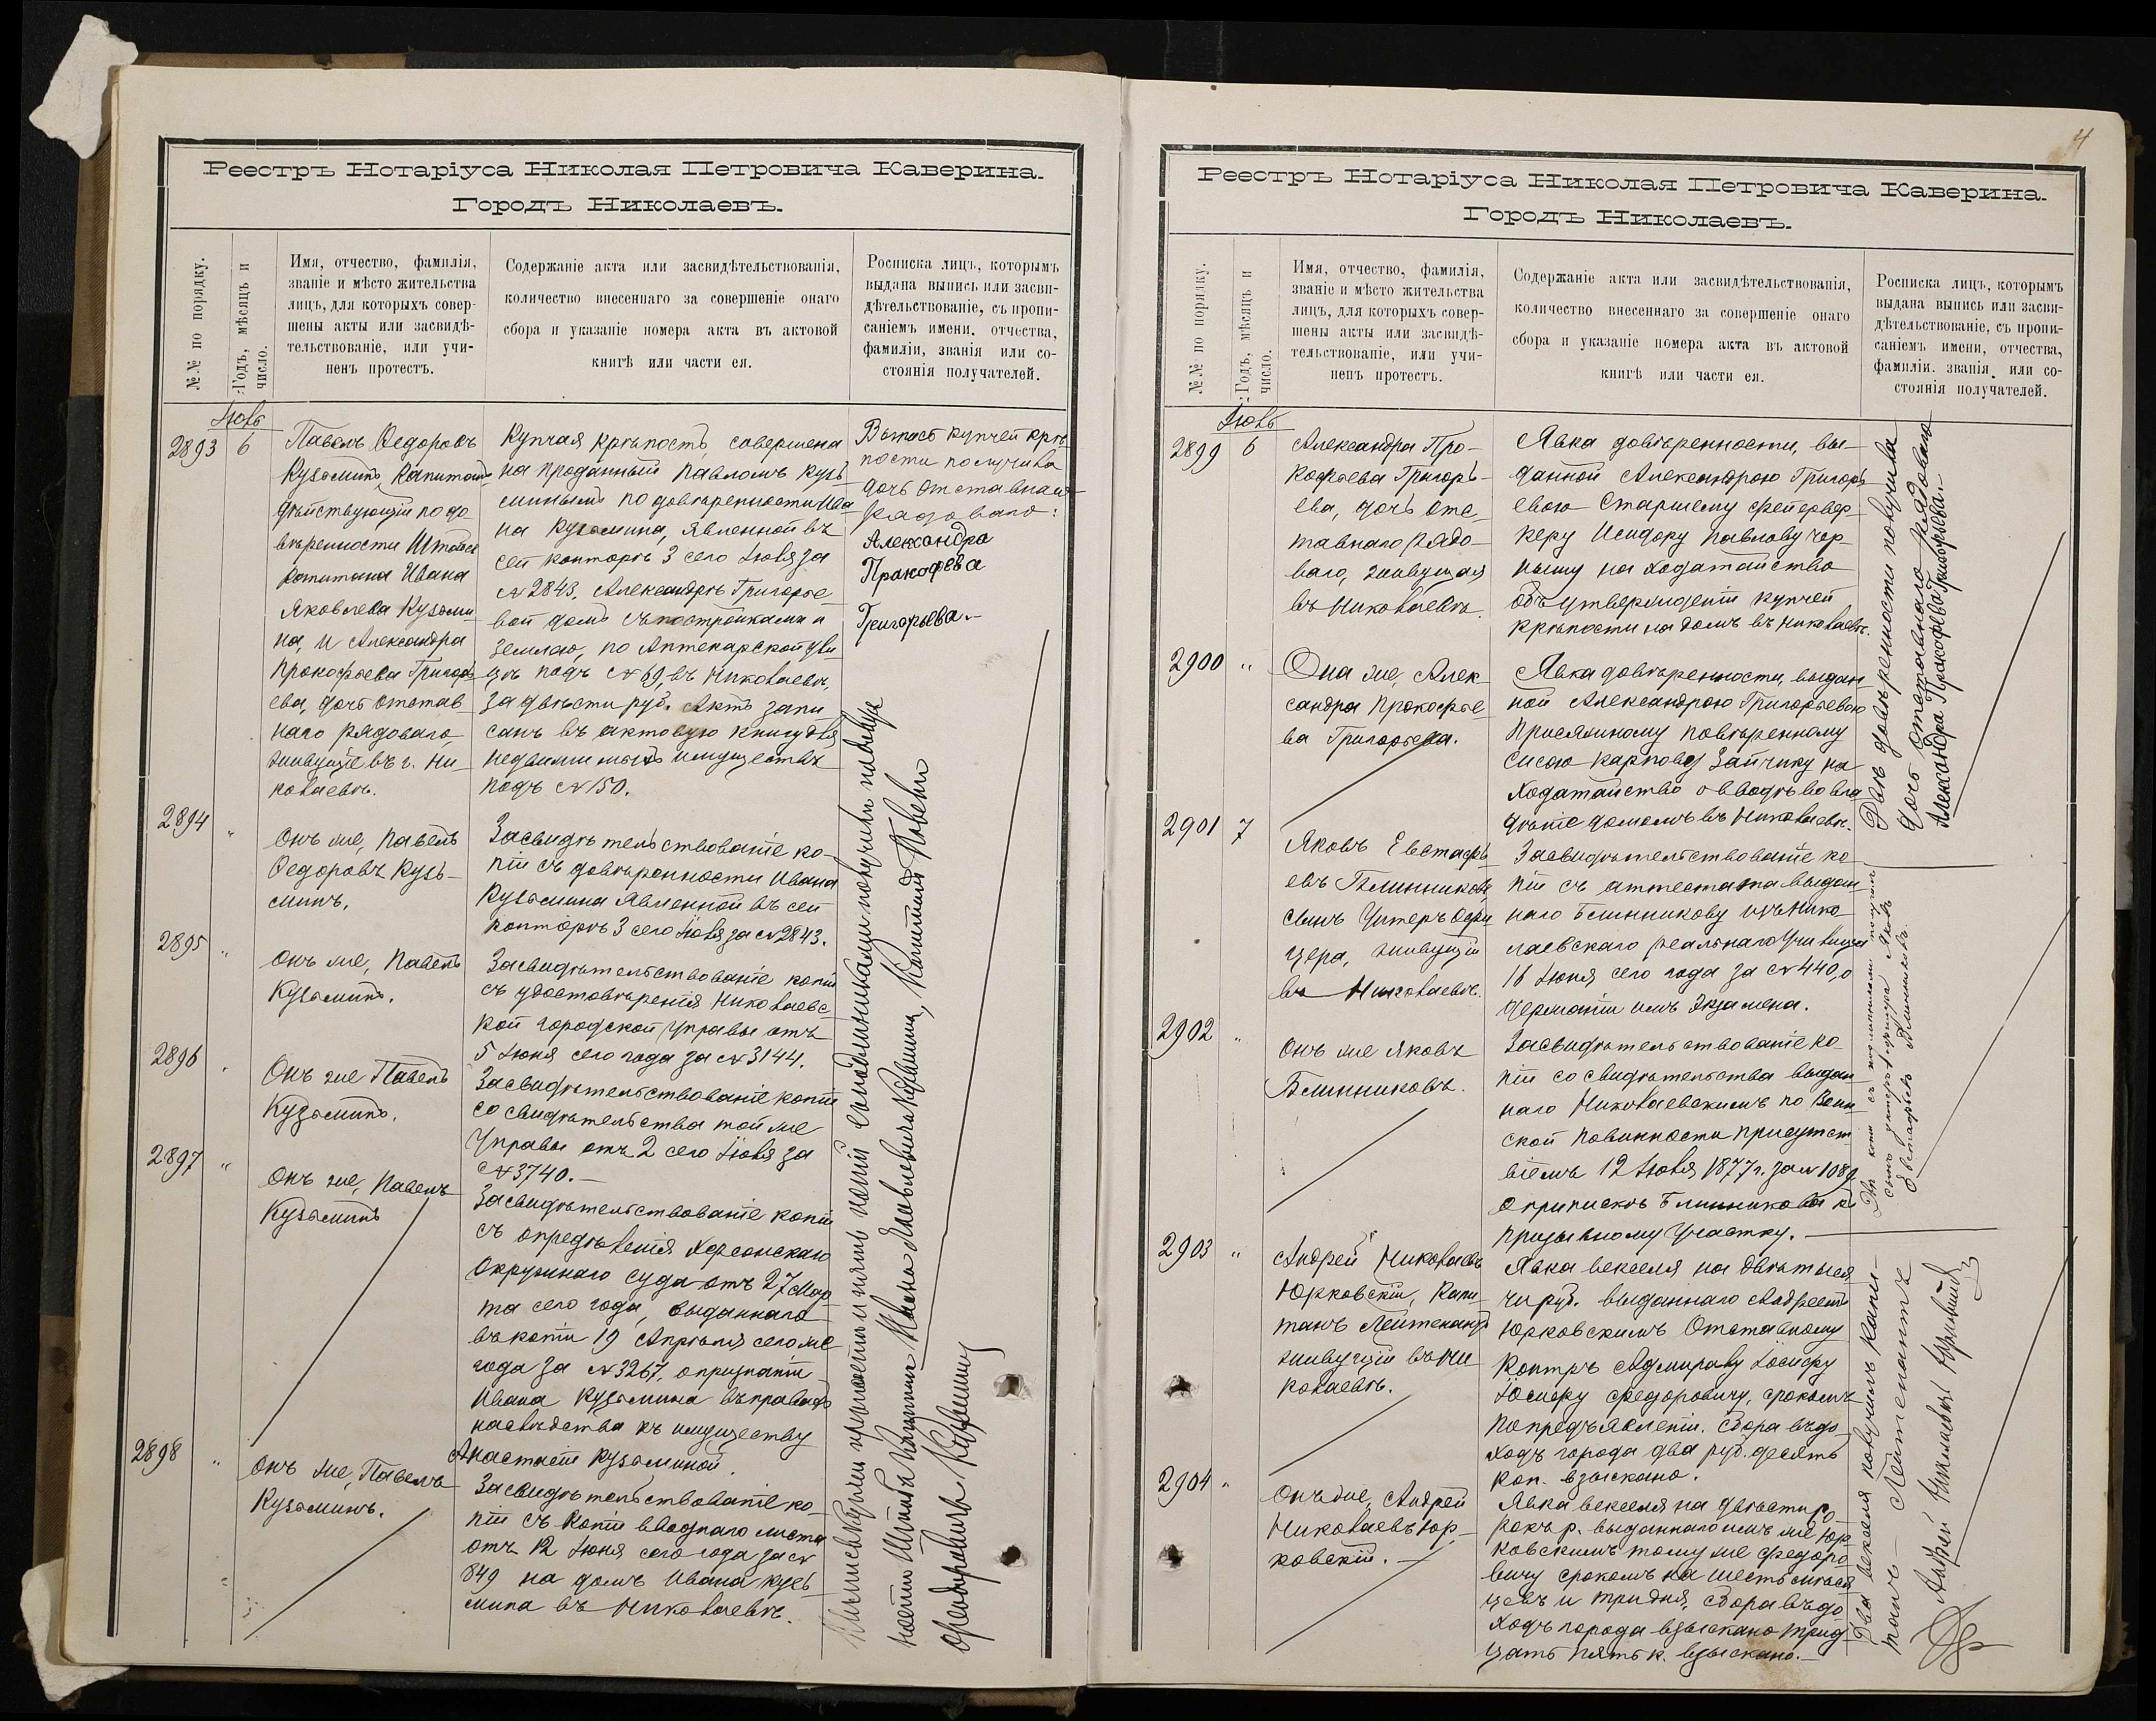 Реестръ Нотаріуса Николая Петровича Каверина.
Городъ Николаевъ.
№№ по порядку.
Годъ, мѣсяцъ и
число.
Имя, отчество, фамилія,
званіе и мѣсто жительства
лицъ, для которыхъ совер-
шены акты или засвидѣ-
тельствованіе, или учи-
ненъ протестъ.
Содержаніе акта или засвидѣтельствованія,
количество внесеннаго за совершеніе онаго
сбора и указаніе номера акта въ актовой
книгѣ или части ея.
Росписка лицъ, которымъ
выдана выпись или засви-
дѣтельствованіе, съ пропи-
саніемъ имени. отчества,
фамиліи, званія или со-
стоянія получателей.
Іюль
2893 6
Павелъ Ѳедоровъ
Кузьминъ, Капитанъ
дѣйствующій по до
вѣренности Штабсъ
Капитана Ивана
Яковлева Кузьми
на, и Александра
Прокофьева Григорь
ева, дочь отстав
наго рядоваго,
живущіе въ г. Ни
колаевѣ.
Купчая крѣпость, совершена
на проданный Павломъ Кузь
минымъ по довѣренности Ива
на Кузьмина, явленной въ
сей конторѣ 3 сего Іюля за
№ 2843, Александрѣ Григорье
вой домъ съ постройками и
землею, по Аптекарской ули
цѣ подъ № 69, въ Николаевѣ,
за двѣсти руб. Актъ запи
санъ въ актовую книгу для
недвижимыхъ имуществъ
подъ № 150.
Выпись купчей крѣ
пости получила
дочь отставнаго
рядоваго:
Александра
Пракофева
Григорьева.
2894 "
Онъ же, Павелъ
Ѳедоровъ Кузь-
минъ.
Засвидѣтельствованіе ко-
піи съ довѣренности Ивана
Кузьмина явленной въ сей
конторѣ 3 сего Іюля за № 2843.
2895 "
Онъ же, Павелъ
Кузьминъ.
Засвидѣтельствованіе копіи
съ удостовѣренія Николаевс
кой городской Управы отъ
5 Іюня сего года за № 3144.
2896 "
Онъ же Павелъ
Кузьминъ.
Засвидѣтельствованіе копіи
со свидѣтельства той же
Управы отъ 2 сего Іюля за
№ 3740.
2897 "
Онъ же, Павелъ
Кузьминъ
Засвидѣтельствованіе копіи
съ опредѣленія Херсонскаго
Окружнаго Суда отъ 27 Мар
та сего года, выданнаго
въ копіи 19 Апрѣля сего же
года за № 3267, о признаніи
Ивана Кузьмина въ правахъ
наслѣдства къ имуществу
Анастасіи Кузьминой.
2898 "
Онъ же, Павелъ
Кузьминъ.
Засвидѣтельствованіе ко-
піи съ копіи вводнаго листа
отъ 12 Іюня сего года за №
849 на домъ Ивана Кузь
мина въ Николаевѣ.
Штабсъ Капитана Ивана Яковлевича Кузьмина, Капитанъ Павелъ
Ѳеодоровичъ Кузьминъ
4
Реестръ Нотаріуса Николая Петровича Каверина.
Городъ Николаевъ.
№№ по порядку.
Годъ, мѣсяцъ и
число.
Имя, отчество, фамилія,
званіе и мѣсто жительства
лицъ, для которыхъ совер-
шены акты или засвидѣ-
тельствованіе, или учи-
ненъ протестъ.
Содержаніе акта или засвидѣтельствованія,
количество внесеннаго за совершеніе онаго
сбора и указаніе номера акта въ актовой
книгѣ или части ея.
Росписка лицъ, которымъ
выдана выпись или засви-
дѣтельствованіе, съ пропи-
саніемъ имени, отчества,
фамиліи. званія или со-
стоянія получателей.
Іюль
2899 6
Александра Про-
кофьева Григорь-
ева, дочь отс-
тавнаго рядо-
ваго, живущая
въ Николаевѣ.
Явка довѣренности, вы-
данной Александрою Григорь
евою Старшему фейервер
керу Исидору Павлову Чор-
ному на ходатайство
объ утвержденіи купчей
крѣпости на домъ въ Николаевѣ.
2900 "
Она же, Алек
сандра Прокофье
ва Григорьева.
Явка довѣренности, выдан
ной Александрою Григорьевою
Присяжному повѣренному
Сисою Карпову Зайчику на
ходатайство о вводѣ во вла
дѣніе домомъ въ Николаевѣ.
Двѣ довѣренности получила
дочь отставнаго рядоваго
Александра Пракофева Григорьева.
2901 7
Яковъ Евстафь
евъ Блинниковъ,
сынъ Унтеръ Офи
цера, живущій
въ Николаевѣ.
Засвидѣтельствованіе ко
піи съ аттестата выдан
наго Блинникову изъ Нико
лаевскаго реальнаго Училища
16 Іюня сего года за № 440, о
держаніи имъ экзамена.
2902 "
Онъ же Яковъ
Блинниковъ.
Засвидѣтельствованіе ко
піи со свидѣтельства выдан
наго Николаевскимъ по Воин
ской повинности Присутст
віемъ 12 Іюля 1877 г. за № 1089
о припискѣ Блинникова къ
призывному участку.
Двѣ копіи съ подлинными получилъ
сынъ унтеръ-офицера Яковъ
Евстафьевъ Блинниковъ.
2903 "
Андрей Николаевъ
Юрковскій, Капи
танъ Лейтенантъ
живущій въ Ни
колаевѣ.
Явка векселя на двѣ тыся
чи руб. выданнаго Андреемъ
Юрковскимъ Отставному
Контръ Адмиралу Іосифу
Іосифу Федоровичу, срокомъ
по предъявленіи. Сбора въ до
ходъ города два руб. десять
коп. взыскано.
2904 "
Онъ же, Андрей
Николаевъ Юр-
ковскій.
Явка векселя на двѣсти со
рокъ р. выданнаго имъ же Юр
ковскимъ тому же Федоро
вичу срокомъ на шесть мѣся
цевъ и три дня, сбора въ до
ходъ города взыскано трид
цать пять к. взыскано.
Два векселя получилъ Капи-
танъ-Лейтенантъ
Андрей Николаевъ Юрковскій